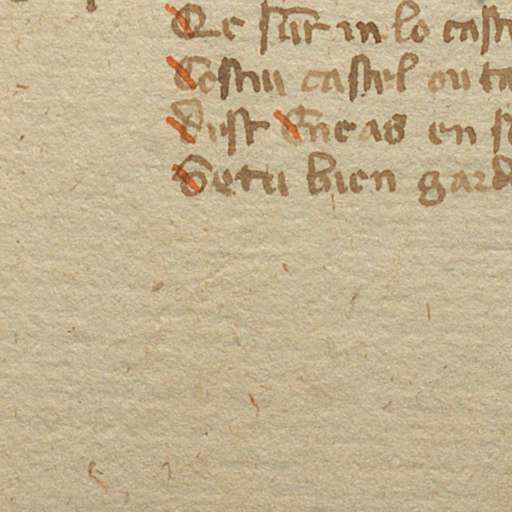 Qe sūt in lo cast
Costui castel ou ta
Dist Eneas en s
Se tu bien gard